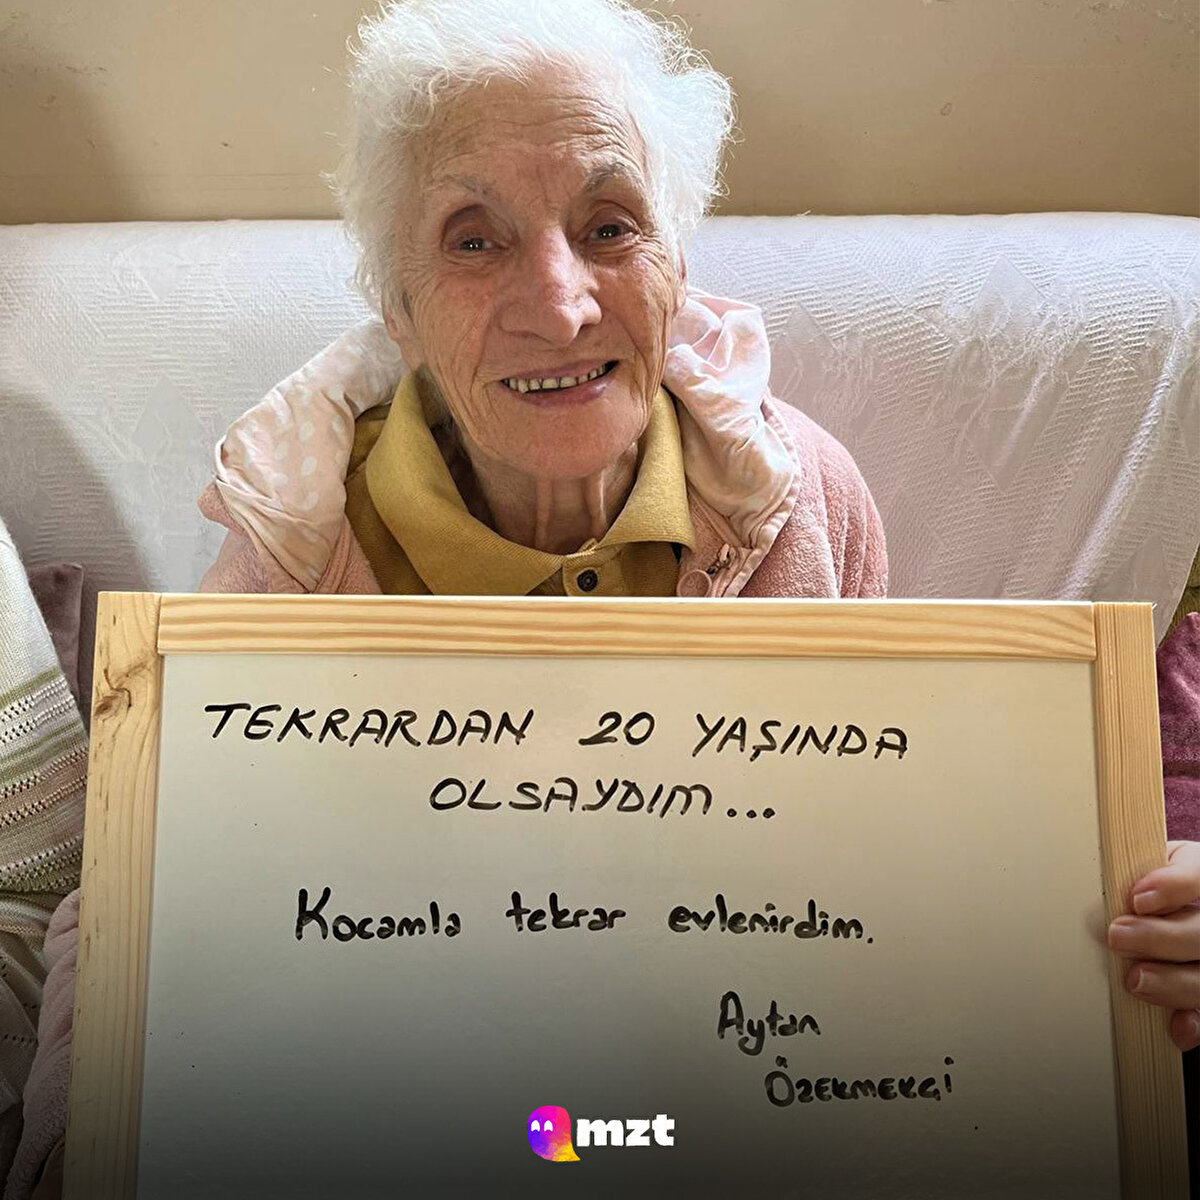 TEKRARDAN 20 YAŞINDA
OLSAYDIM...
Kocamla tekrar evlenirdim.
Aytan
ÖZEKMEKÇİ
mzt